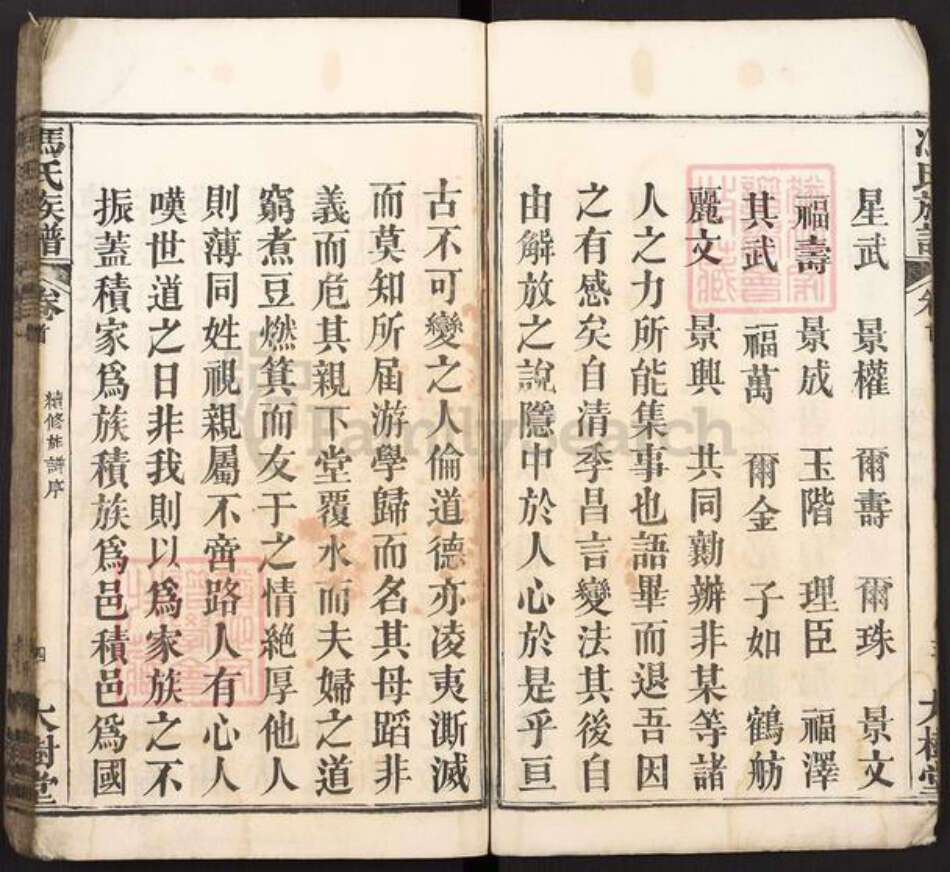 星武 景權 爾壽 爾珠 景文
福壽 景成 玉階 理臣 福澤
其武 福萬 爾金 子如 鶴舫
麗文 景興 共同勷辦非某等諸
人之力所能集事也語畢而退吾因
之有感矣自清季昌言變法其後自
由解放之說隱中於人心於是乎亘
古不可變之人倫道德亦凌夷澌滅
而莫知所届游學歸而名其母蹈非
義而危其親下堂覆水而夫婦之道
窮煮豆燃箕而友于之情絶厚他人
則薄同姓視親屬不啻路人有心人
嘆世道之日非我則以爲家族之不
振蓋積家爲族積族爲邑積邑爲國
馮氏族譜 卷首 續修族譜序 四 大樹堂
FamilySearch